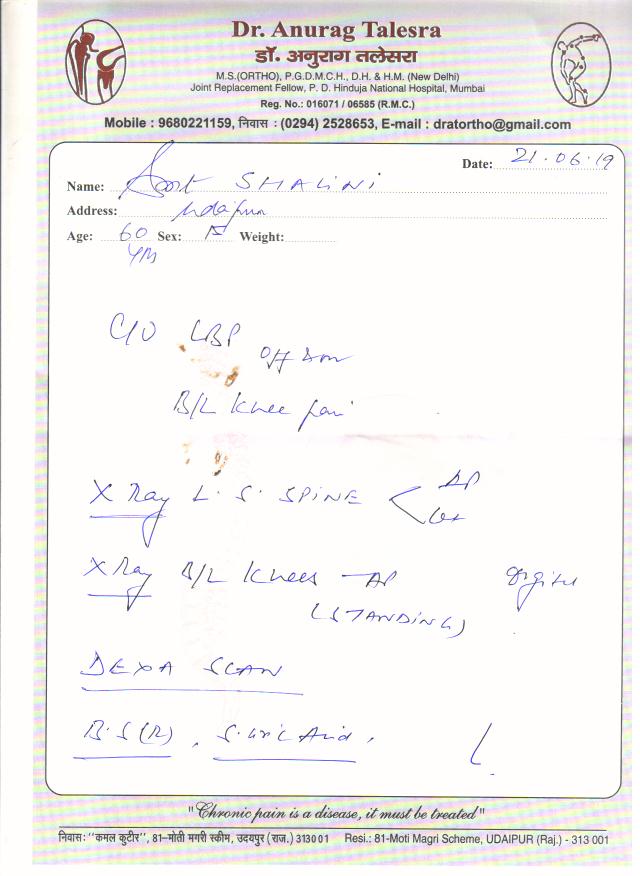 Dr. Anurag Talesra
डॉ. अनुराग तलेसरा
M.S.(ORTHO), P.G.D.M.C.H., D.H. & H.M. (New Delhi)
Joint Replacement Fellow, P. D. Hinduja National Hospital, Mumbai
Reg. No.: 016071 / 06585 (R.M.C.)
Mobile : 9680221159, निवास : (0294) 2528653, E-mail : dratortho@gmail.com
Date: 21.06.19
Name: SHALINI
Address: Udaipur
Age: 60 Sex: F Weight:
C/O LBP
Off & on
B/L Knee pain
X Ray L.S. SPINE < AP
Lat
X Ray B/L Knees - AP Digital
(STANDING)
DEXA SCAN
B.S (R), S. Uric Acid,
"Chronic pain is a disease, it must be treated"
निवास: "कमल कुटीर", 81-मोती मगरी स्कीम, उदयपुर (राज.) 313001 Resi.: 81-Moti Magri Scheme, UDAIPUR (Raj.) - 313 001